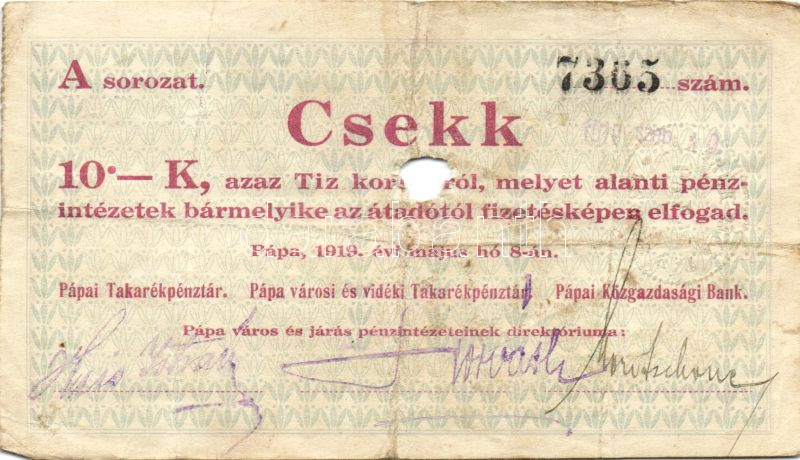 A sorozat. 7365 szám.
Csekk
10·— K, azaz Tiz kor ról, melyet alanti pénz-
intézetek bármelyike az átadótól fizetésképen elfogad.
Pápa, 1919. évi május hó 8-án.
Pápai Takarékpénztár. Pápa városi és vidéki Takarékpénztár. Pápai Közgazdasági Bank.
Pápa város és járás pénzintézeteinek direktóriuma: